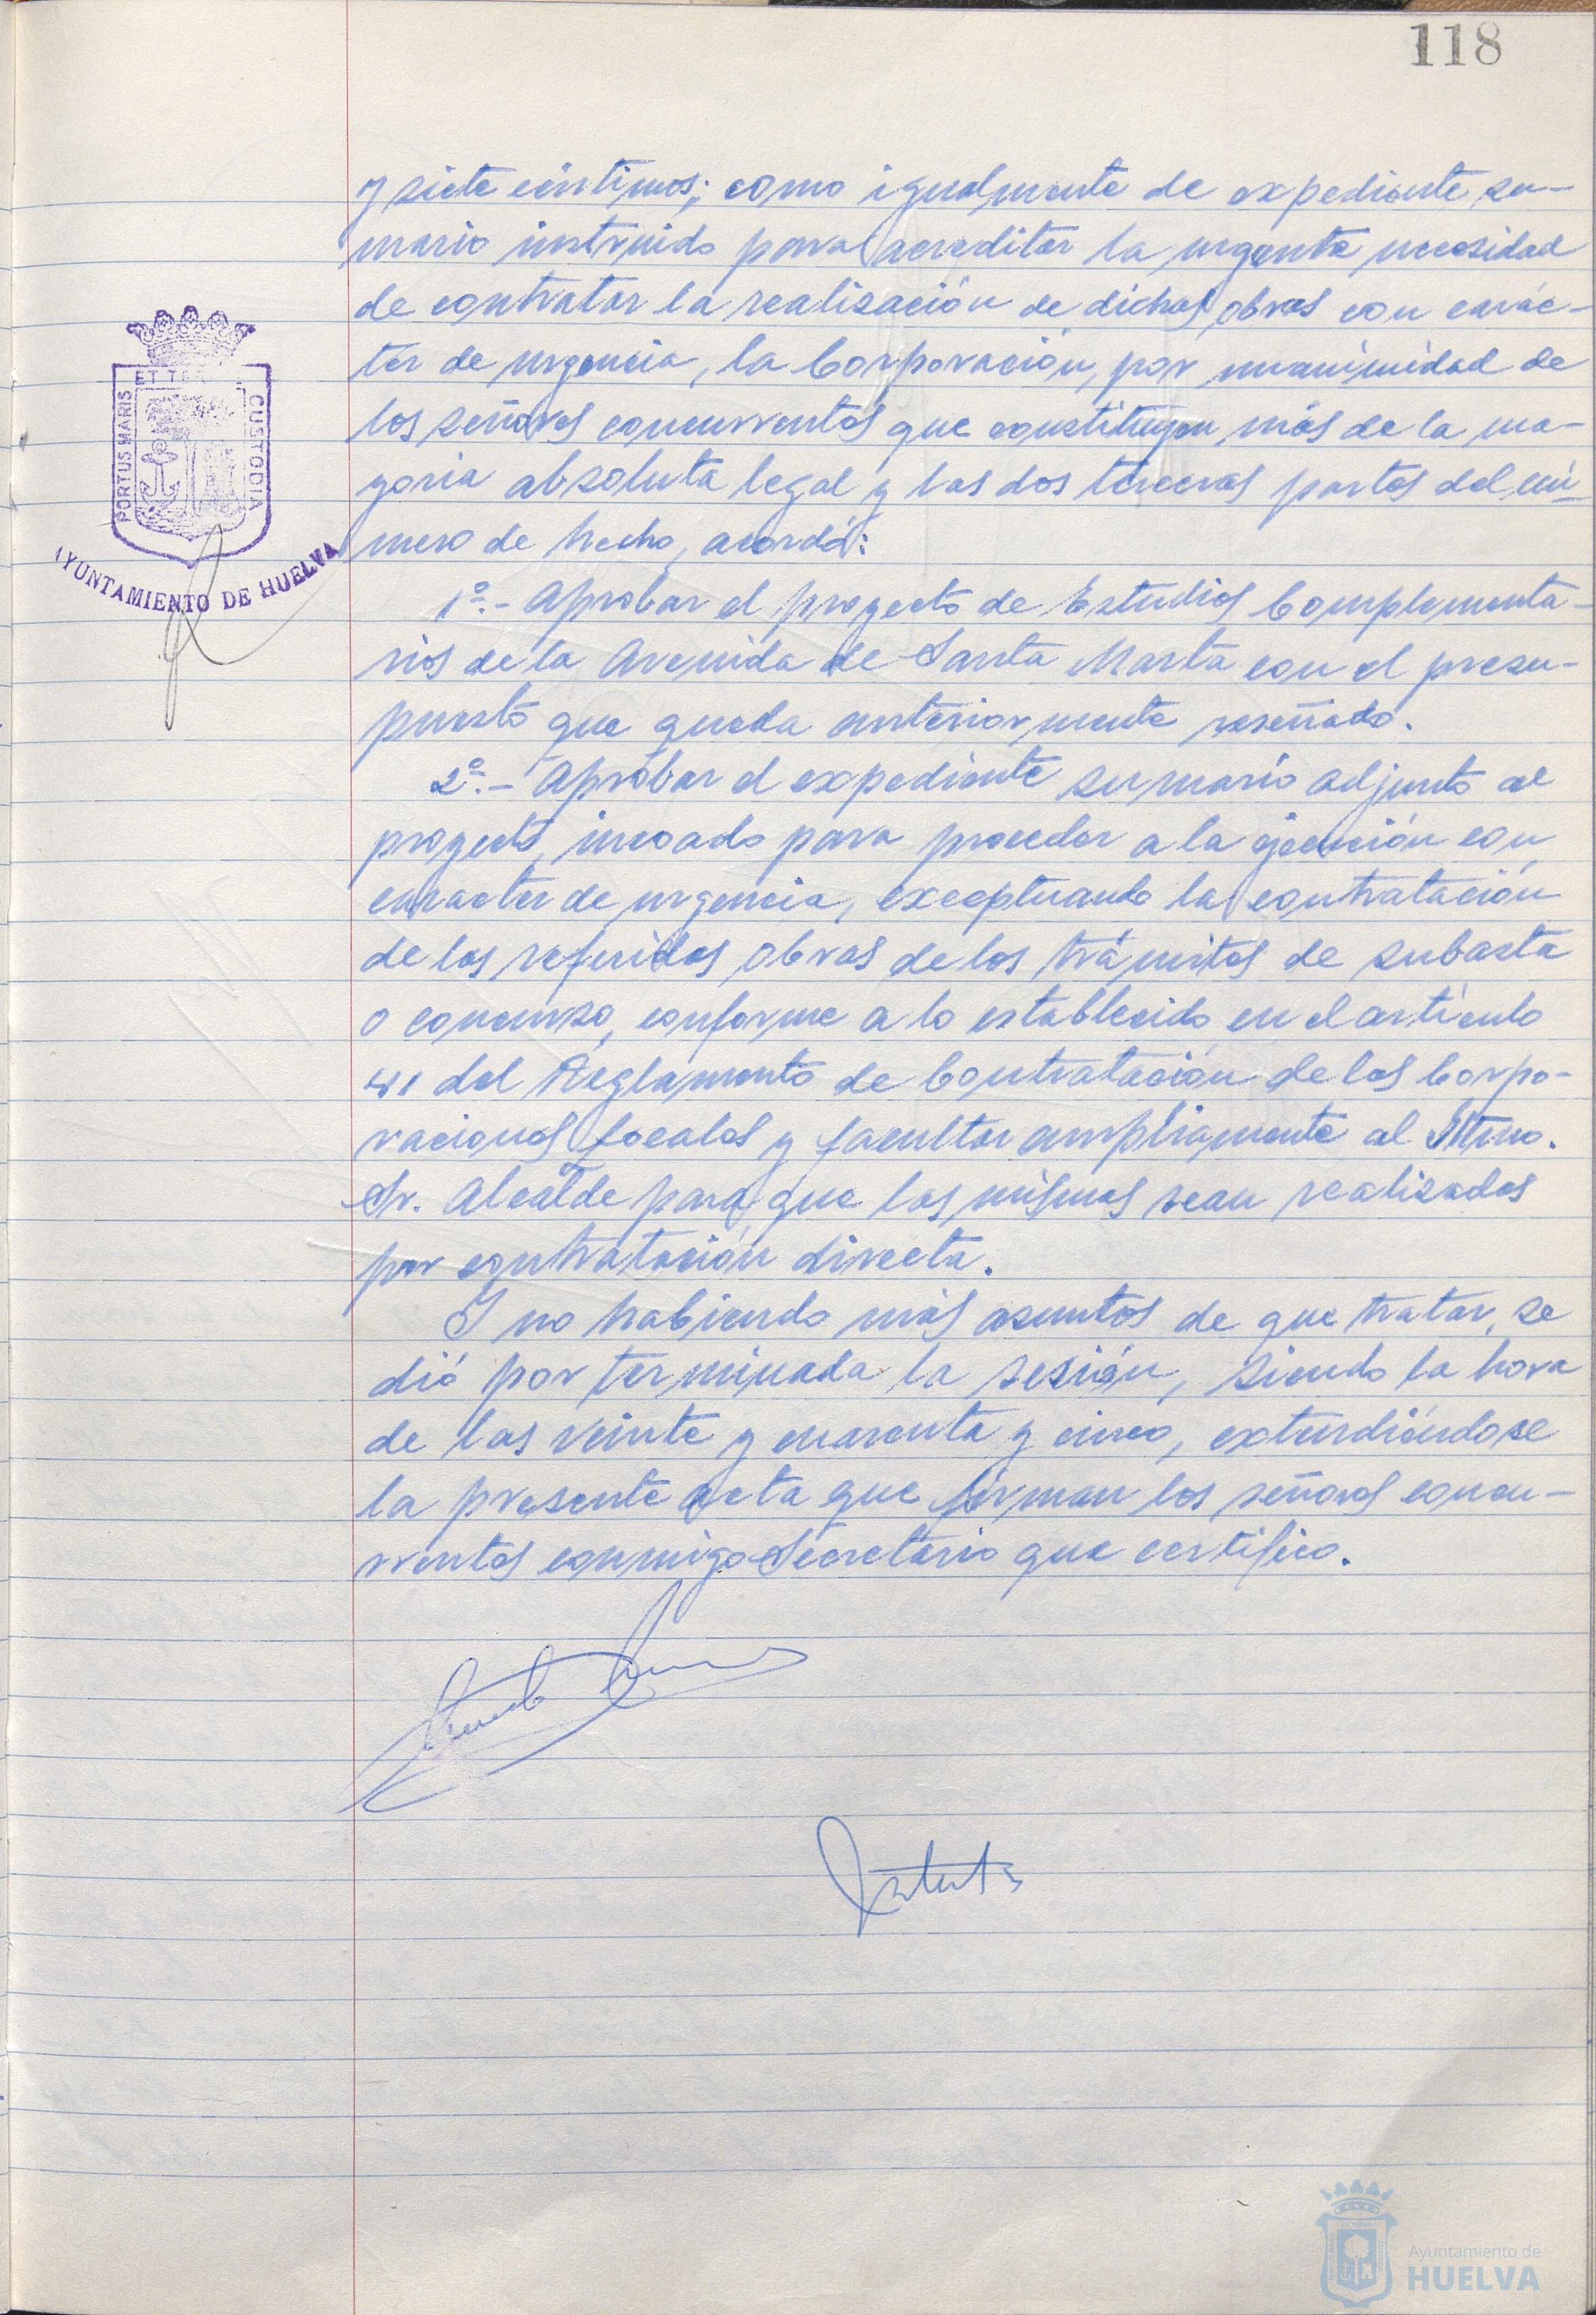 118
y siete céntimos; como igualmente de expediente su-
mario instruido para acreditar la urgente necesidad
de contratar la realización de dichas obras con carác-
ter de urgencia, la Corporación, por unanimidad de
los señores concurrentes que constituyen más de la ma-
yoria absoluta legal y las dos terceras partes del nú-
mero de hecho, acordó:
1º.- Aprobar el proyecto de Estudios Complementa-
rios de la Avenida de Santa Marta con el presu-
puesto que queda anteriormente reseñado.
2º.- Aprobar el expediente sumario adjunto al
proyecto, incoado para proceder a la ejecución con
caracter de urgencia, exceptuando la contratación
de las referidas obras de los trámites de subasta
o concurso, conforme a lo establecido en el artículo
41 del Reglamento de Contratación de las Corpo-
raciones Locales y facultar ampliamente al Iltmo.
Sr. Alcalde para que las mismas sean realizadas
por contratación directa.
Y no habiendo más asuntos de que tratar, se
dió por terminada la sesión, siendo la hora
de las veinte y cuarenta y cinco, extendiéndose
la presente acta que firman los señores concu-
rrentes conmigo Secretario que certifico.
PORTUS MARIS
ET
CUSTODIA
AYUNTAMIENTO DE HUELVA
Ayuntamiento de
HUELVA